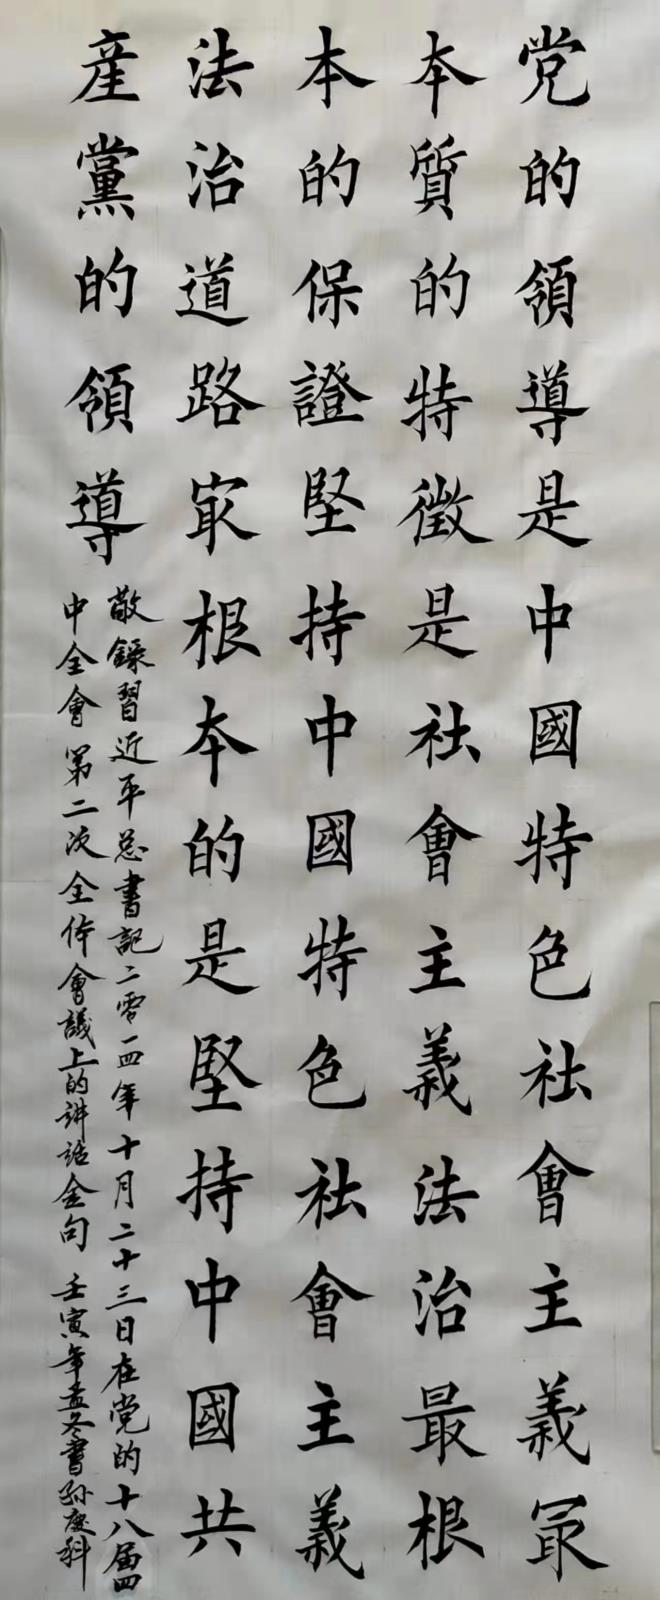 党的領導是中國特色社會主義冣
本質的特徵是社會主義法治最根
本的保證堅持中國特色社會主義
法治道路冣根本的是堅持中國共
産黨的領導
敬録習近平总書記二零一四年十月二十三日在党的十八届四
中全會第二次全体會議上的讲話金句 壬寅年孟冬書孙庆科